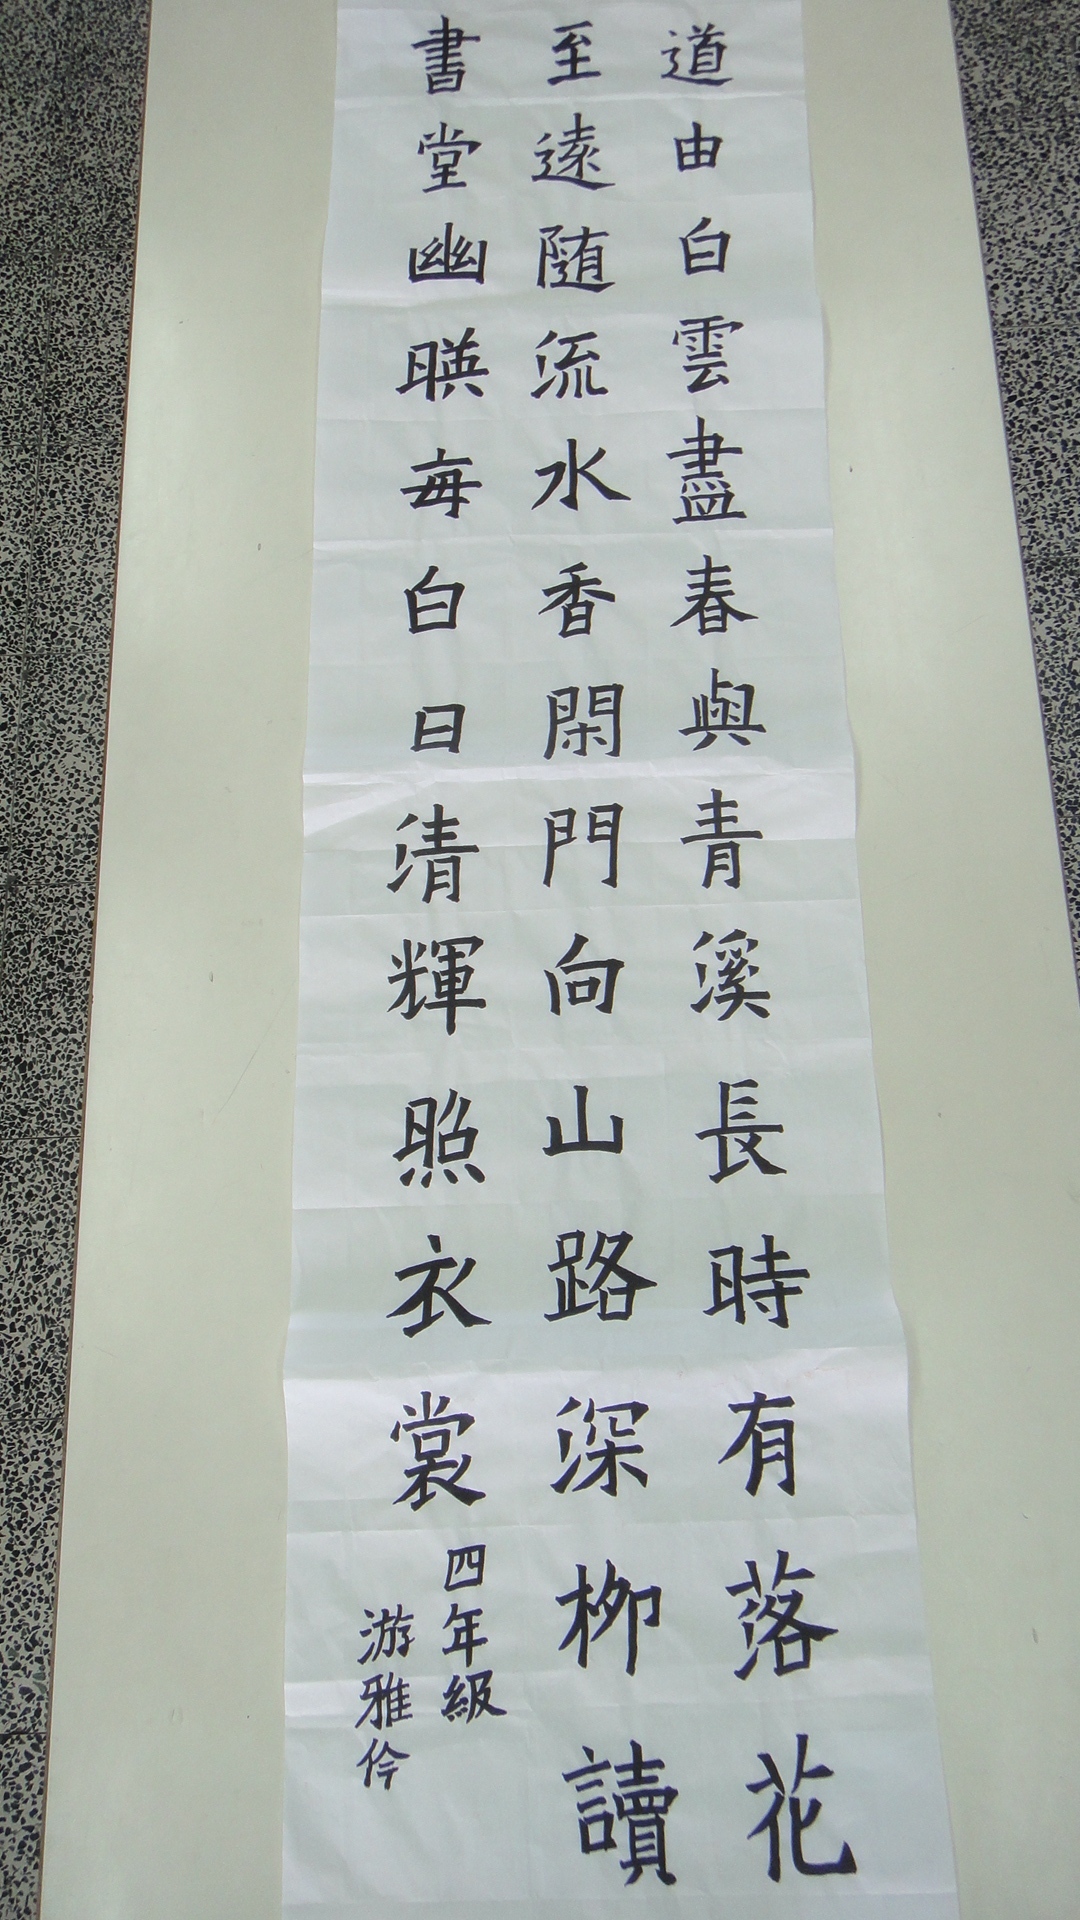 道由白雲盡春與青溪長時有落花
至遠随流水香閑門向山路深柳讀
書堂幽暎每白日清輝照衣裳
四年級
游雅伶